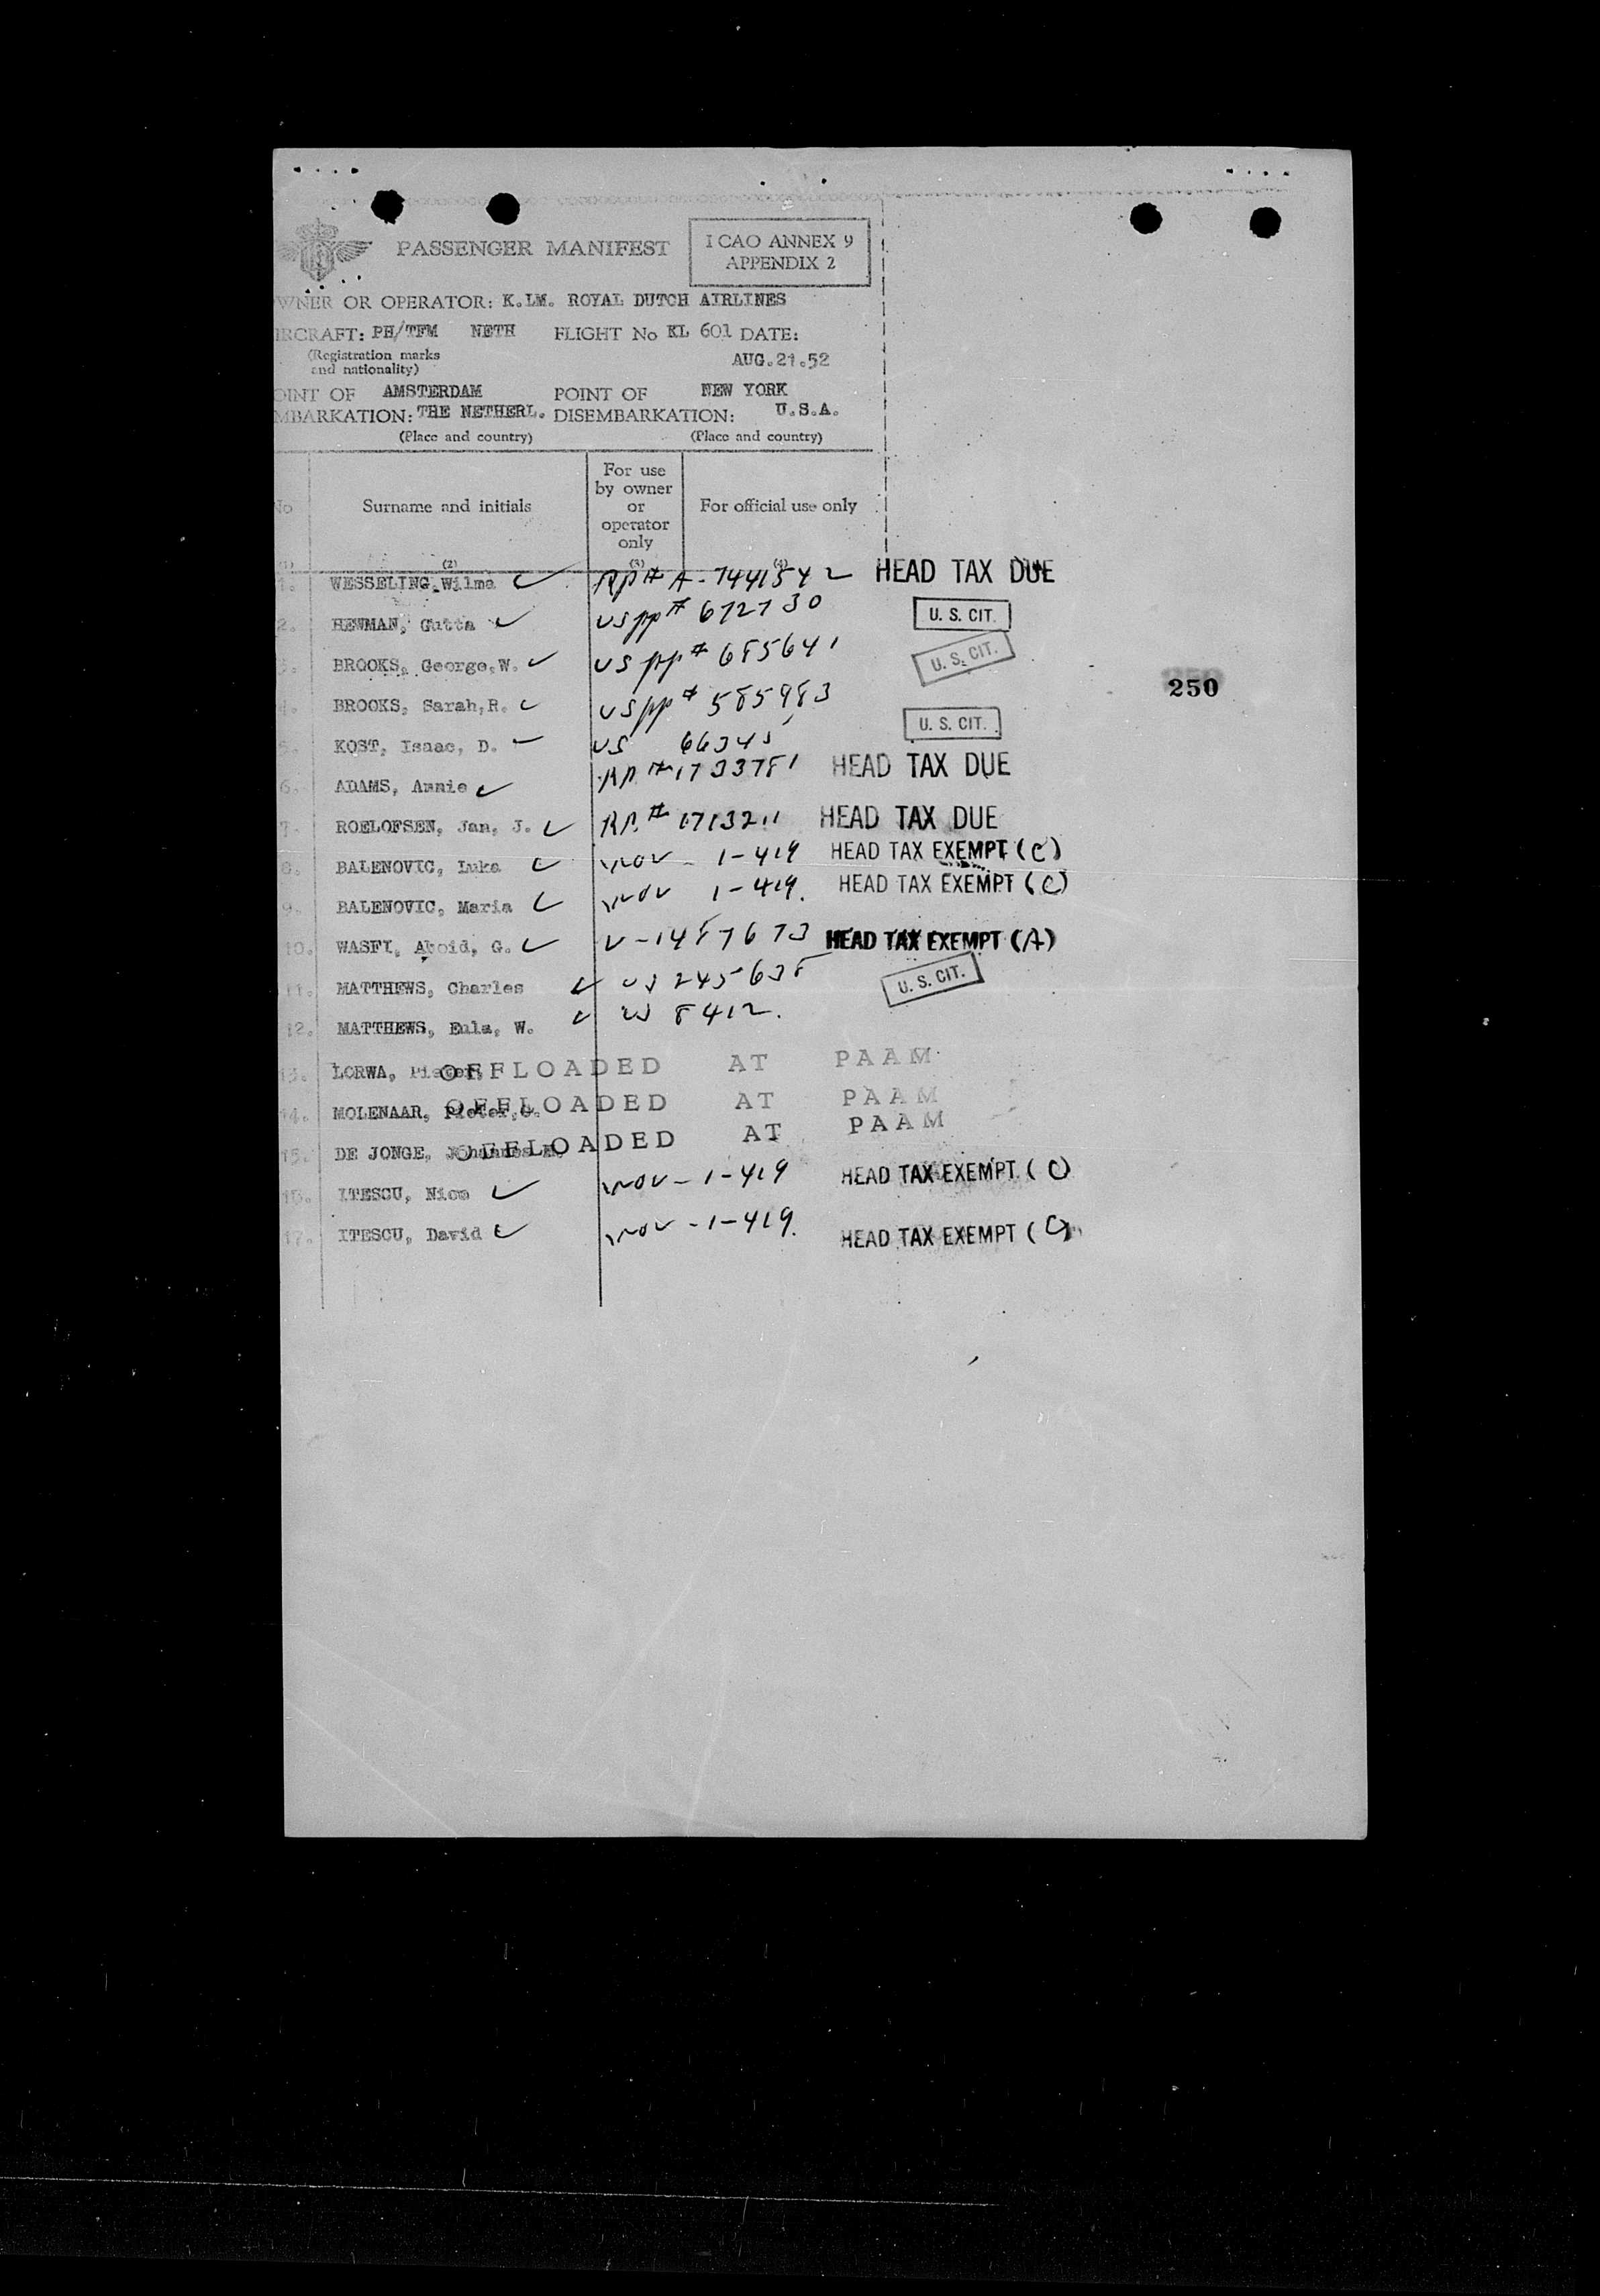 PASSENGER MANIFEST
I CAO ANNEX 9
APPENDIX 2
WNER OR OPERATOR: K.LM. ROYAL DUTCH AIRLINES
IRCRAFT: PH/TFM NETH FLIGHT No KL 601 DATE:
(Registration marks
and nationality)
AUG.21.52
OINT OF AMSTERDAM POINT OF NEW YORK
MBARKATION: THE NETHERL. DISEMBARKATION: U.S.A.
(Place and country) (Place and country)
No
Surname and initials
For use
by owner
or
operator
only
For official use only
(1) (2) (3) (4)
1. WESSELING,Wilma RP# A-7441542 HEAD TAX DUE
2. HEWMAN, Gutta US pp# 672730 U. S. CIT.
3. BROOKS, George,W. US pp# 685641 U. S. CIT.
250
4. BROOKS, Sarah,R. US pp# 585983
5. KOST, Isaac, D. US 66345 U. S. CIT.
6. ADAMS, Annie RP# 1733781 HEAD TAX DUE
7. ROELOFSEN, Jan, J. RP.# 1713211 HEAD TAX DUE
8. BALENOVIC, Luka 1-419 HEAD TAX EXEMPT (C)
9. BALENOVIC, Maria 1-419. HEAD TAX EXEMPT (C)
10. WASFI, G. V-1487673 HEAD TAX EXEMPT (A)
11. MATTHEWS, Charles US 245638 U. S. CIT.
12. MATTHEWS, Eula, W. US 8412.
13. LORWA, OFFLOADED AT PAAM
14. MOLENAAR, Pieter,G. OFFLOADED AT PAAM
15. DE JONGE, OFFLOADED AT PAAM
16. ITESCU, Nico 1-419 HEAD TAX EXEMPT (C)
17. ITESCU, David 1-419. HEAD TAX EXEMPT (C)